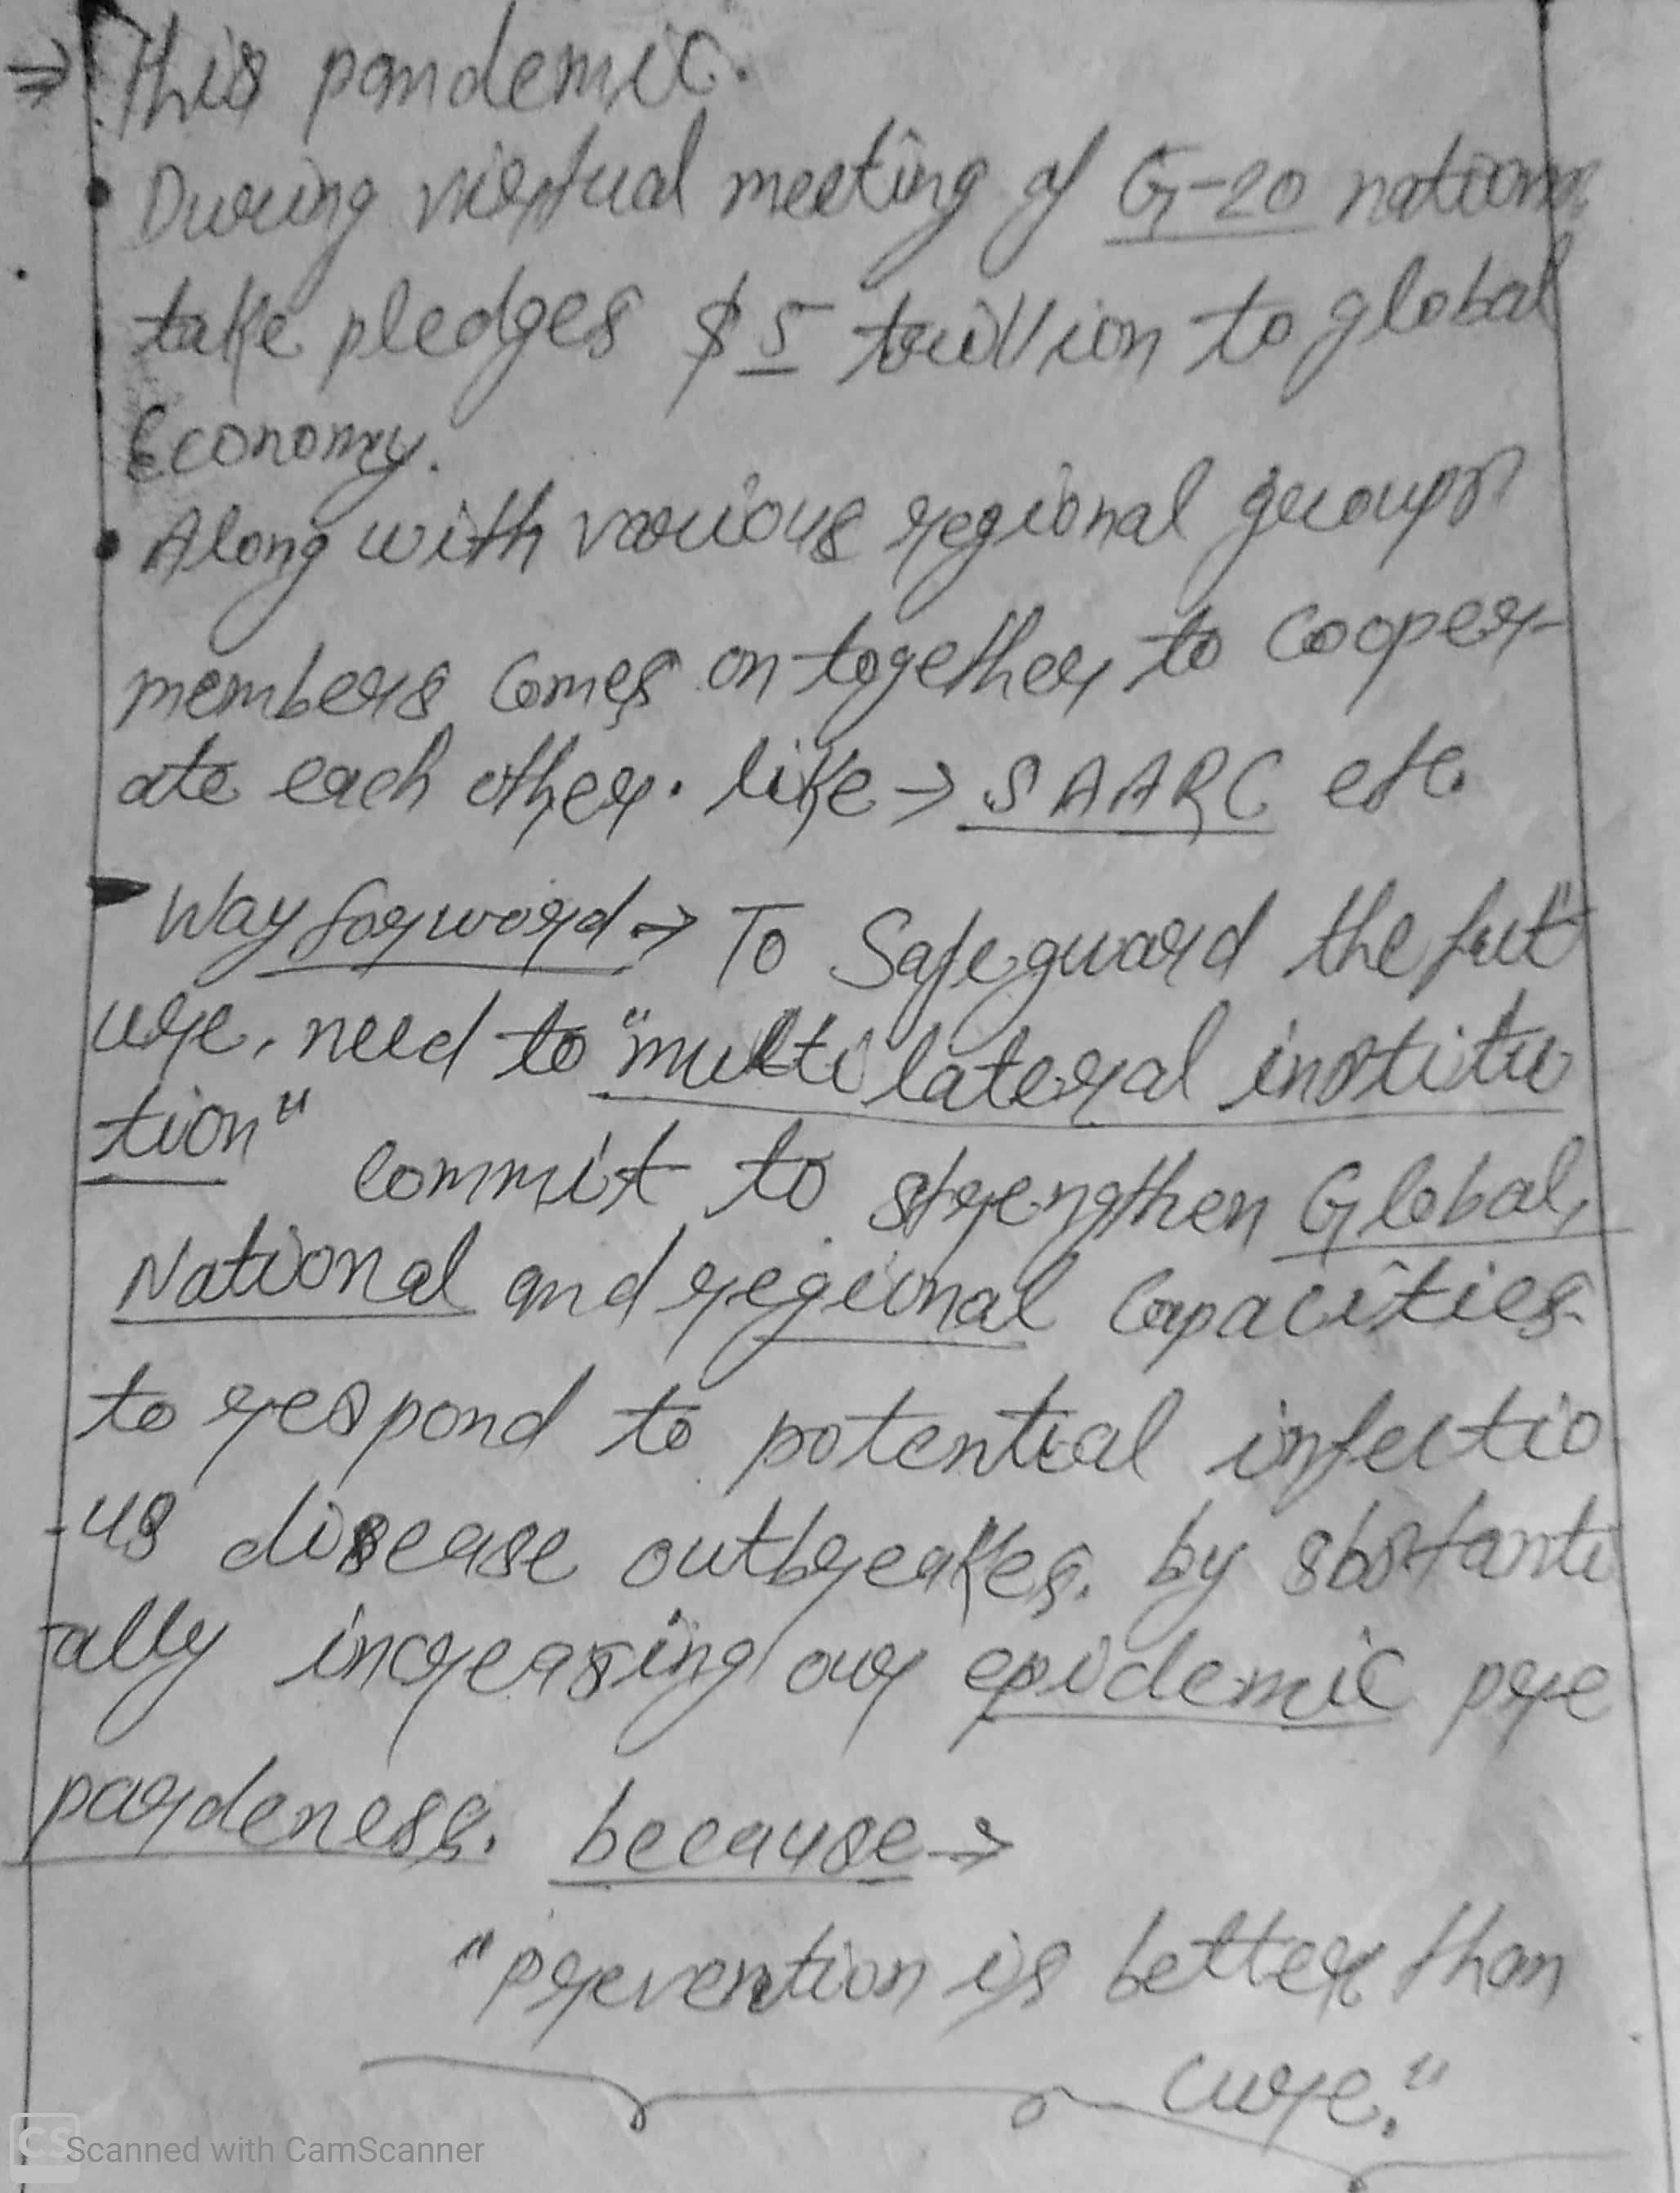 ⇒ This pandemic.
• During virtual meeting of G-20 nations
take pledges $5 trillion to global
Economy.
• Along with various regional groups
members comes on together to cooper-
ate each other. like → SAARC etc.
Way forword → To Safeguard the fut
ure, need to "multilateral institu
tion" commit to strengthen Global,
National and regional capacities
to respond to potential infectio
-us disease outbreakes. by sbstanti
ally increasing our epidemic pre
pardeness. because →
"prevention is better than
cure."
CS Scanned with CamScanner